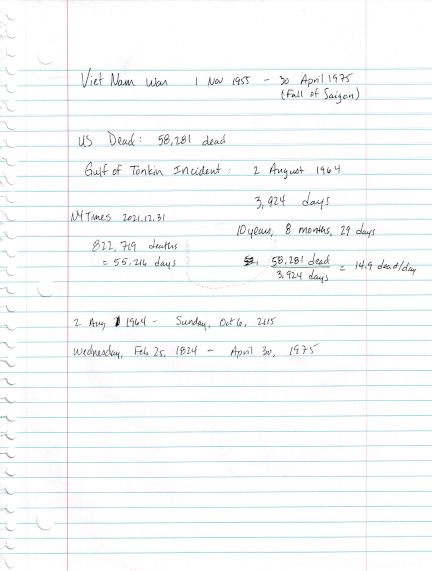 Viet Nam War 1 Nov 1955 - 30 April 1975
(Fall of Saigon)
US Dead: 58,281 dead
Gulf of Tonkin Incident: 2 August 1964
3,924 days
NY Times 2021.12.31
10 years, 8 months, 29 days
822,719 deaths
= 55,216 days
58,281 dead
3,924 days
= 14.9 dead/day
2 Aug 1964 - Sunday, Oct 6, 2115
Wednesday, Feb 25, 1824 - April 30, 1975